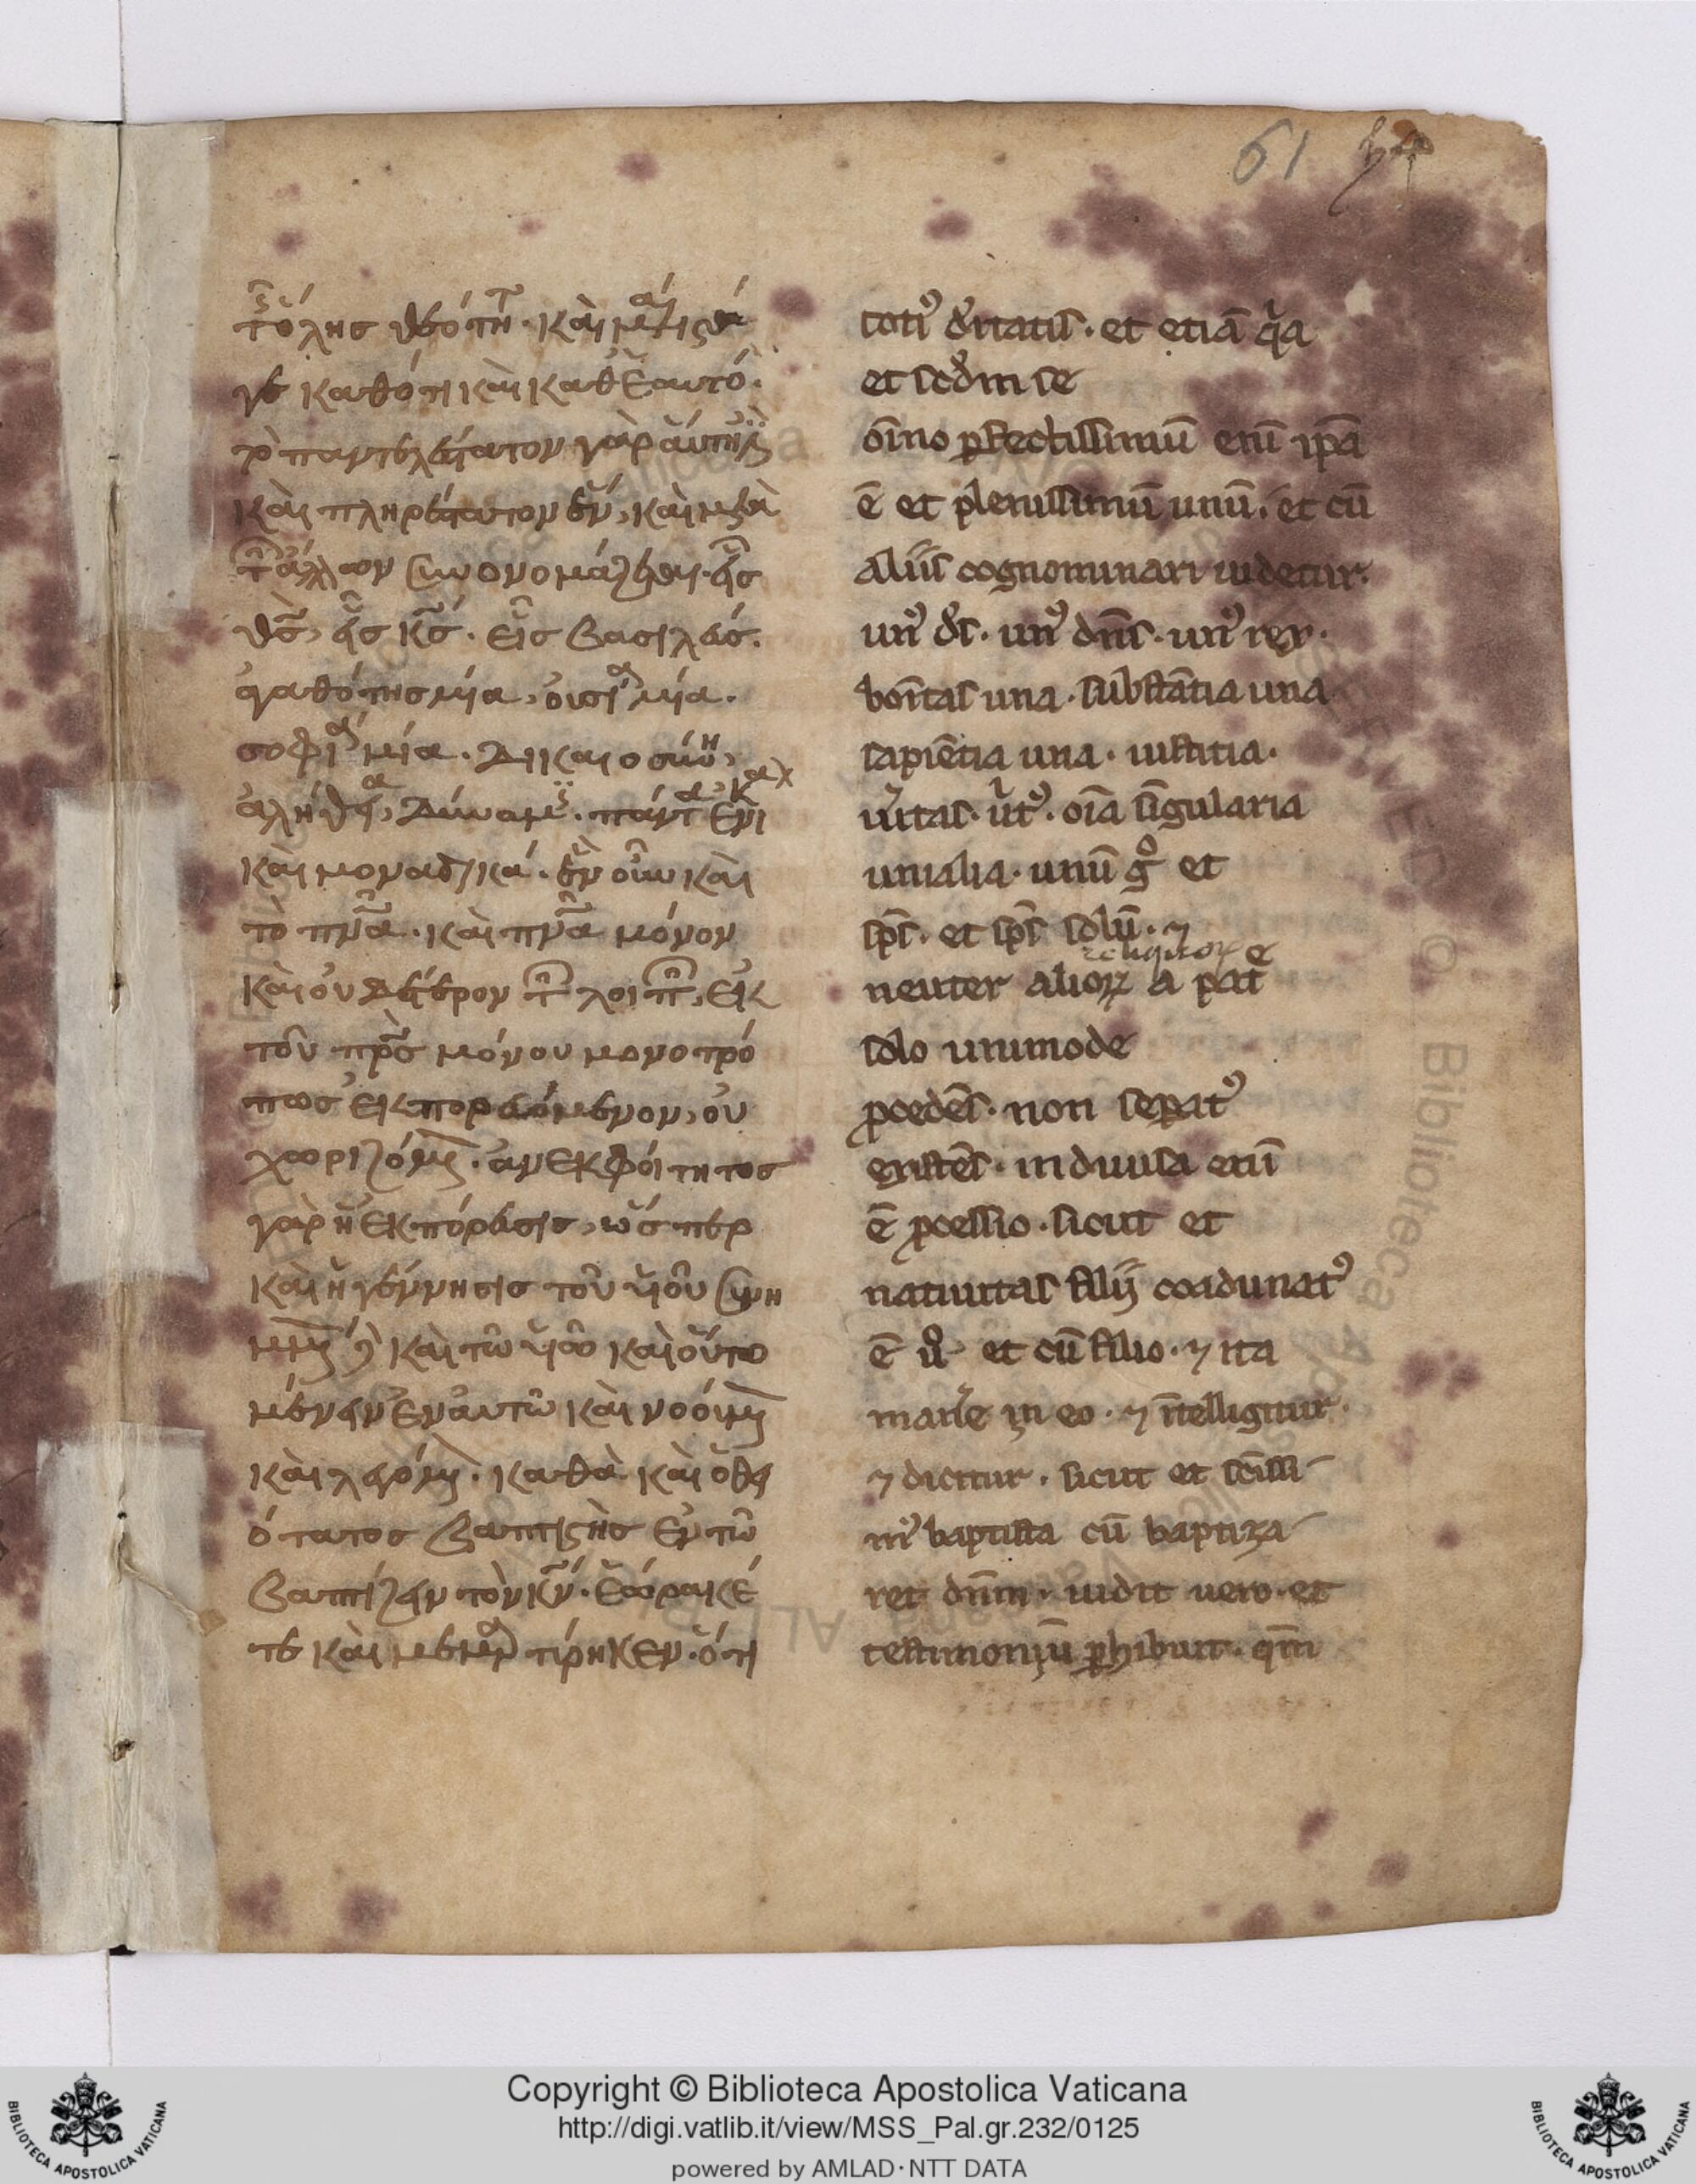 61
τῆς ὅλης θεότητ καὶ μάλιστά
γε καθότι καὶ καθ ἑαυτό.
τὸ παντελείατον γὰρ αὐτὴ
καὶ πληρέστατον ἕν, καὶ μετὰ
τῶν ἄλλων συνονομάζεται. εἷς
θς, εἷς κς. εἷς βασιλεύς.
ἀγαθότης μία, οὐσία μία.
σοφία μία. δικαιοσύνη,
ἀλήθεια, δύναμις. πάντα ἑνικὰ
καὶ μοναδικά. ἓν οὖν καὶ
τὸ πνα. καὶ πνα μόνον
καὶ οὐδέτερον τῶν λοιπῶν, ἐκ
τοῦ πρς μόνου μονοτρό
πως ἐκπορευόμενον, οὐ
χωριζόμενον. ἀνεκφοίτητος
γὰρ ἡ ἐκπόρευσις, ὥσπερ
καὶ ἡ γέννησις τοῦ υἱοῦ συνη
μμένον δὲ καὶ τῷ υἱῷ καὶ οὕτω
μένειν ἐν αὐτῷ καὶ νοούμενον
καὶ λεγόμενον. καθὰ καὶ ὁ θει
ότατος βαπτιστὴς ἐν τῷ
βαπτίζειν τὸν κν. ἑώρακέ
τε καὶ μεμαρτύρηκεν. ὅτι
toti9 ditatis. et etiā qa
et scdm se
oīno pfectissimū enī ipā
ē et plenissimū unū. et cū
aliis cognominari uidetur.
un9 ds. un9 dns. un9 rex.
bonitas una. substātia una
sapiētia una. iustitia.
uitas. uirt9. oīa singularia
unialia. unū go et
sps. et sps solū. ⁊
reliquor e
neuter alioꝝ a pat
solo unimode
pcedēs. non sepat9
existēs. indiuisa enī
ē pcessio. sicut et
natiuitas filij coadunat9
ē u° et cū filio. ⁊ ita
mane in eo. ⁊ ītelligitur.
⁊ dicitur. sicut et scīssi
m9 baptista cū baptiza
ret dnm. uidit uero. et
testimoniū phibuit. qm
Copyright © Biblioteca Apostolica Vaticana
http://digi.vatlib.it/view/MSS_Pal.gr.232/0125
powered by AMLAD·NTT DATA
BIBLIOTECA APOSTOLICA VATICANA
BIBLIOTECA APOSTOLICA VATICANA